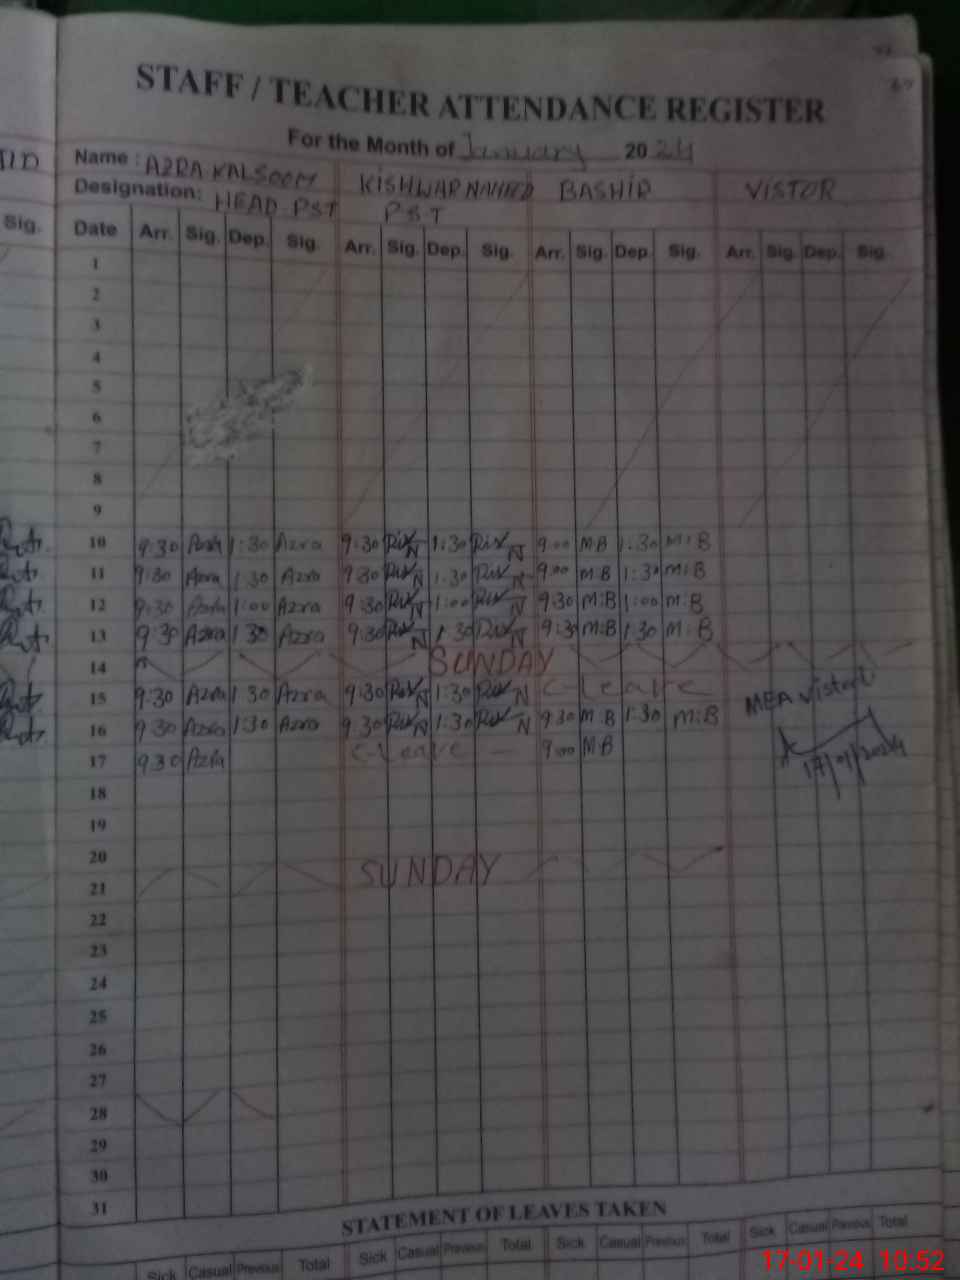 STAFF / TEACHER ATTENDANCE REGISTER
For the Month of January 2024
Name : AZRA KALSOOM KISHWAR NAHEED BASHIR VISTOR
Designation: HEAD PST PST
Sig. Date Arr. Sig. Dep. Sig. Arr. Sig. Dep. Sig. Arr. Sig. Dep. Sig. Arr. Sig. Dep. Sig.
1
2
3
4
5
6
7
8
9
10 9:30 Azra 1:30 Azra 9:30 1:30 9:00 M.B 1:30 M:B
11 9:30 Azra 1:30 Azra 9:30 1:30 9:00 M:B 1:30 M:B
12 9:30 Azra 1:00 Azra 9:30 1:00 9:30 M:B 1:00 M:B
13 9:30 Azra 1:30 Azra 9:30 1:30 9:30 M:B 1:30 M:B
14 SUNDAY
15 9:30 Azra 1:30 Azra 9:30 1:30 C-leave MEA Vistor
16 9:30 Azra 1:30 Azra 9:30 1:30 9:30 M:B 1:30 M:B
17 9:30 Azra C-leave 9:00 M.B 17/01/2024
18
19
20
21 SUNDAY
22
23
24
25
26
27
28
29
30
31
STATEMENT OF LEAVES TAKEN
Sick Casual Previous Total Sick Casual Previous Total Sick Casual Previous Total Sick Casual Previous Total
17-01-24 10:52